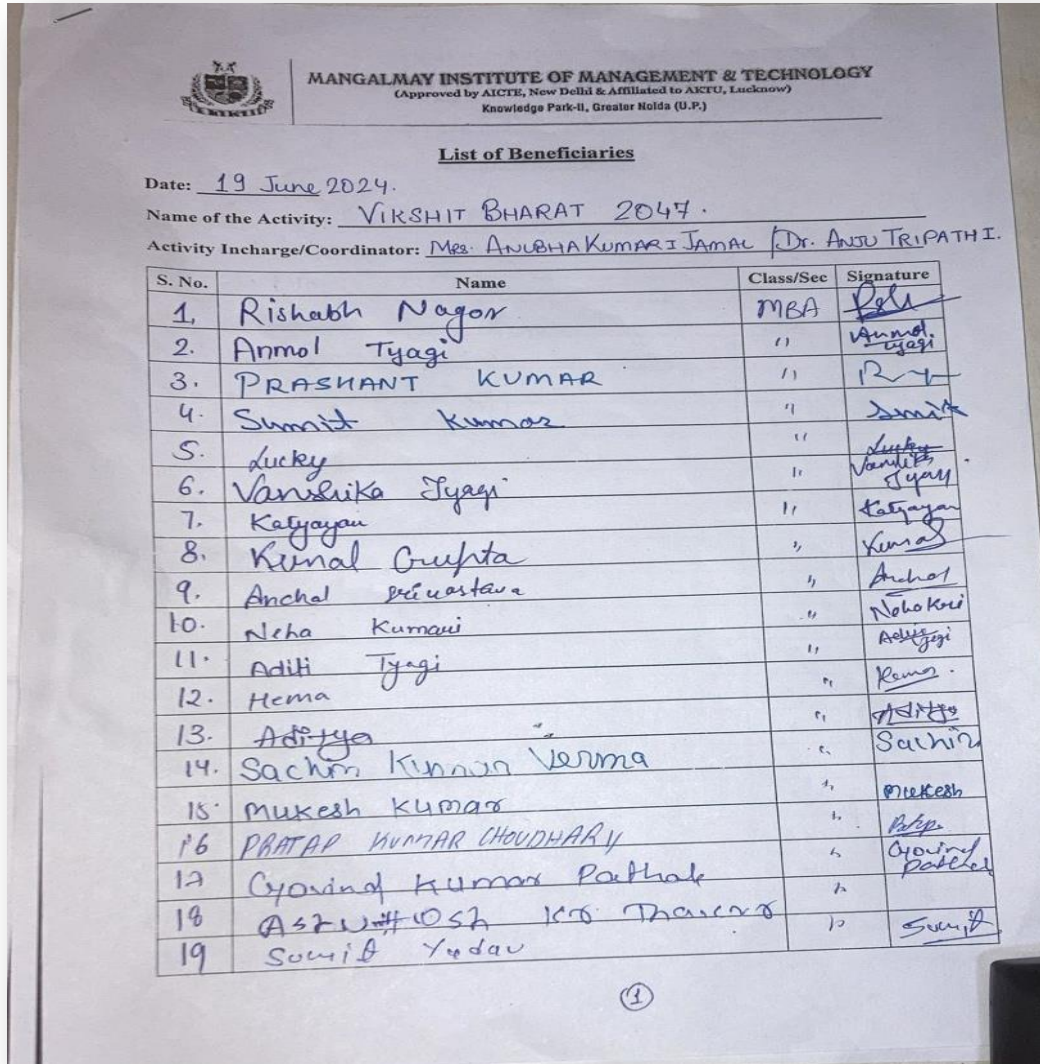 MANGALMAY INSTITUTE OF MANAGEMENT & TECHNOLOGY
(Approved by AICTE, New Delhi & Affiliated to AKTU, Lucknow)
Knowledge Park-II, Greater Noida (U.P.)
List of Beneficiaries
Date: 19 June 2024.
Name of the Activity: VIKSHIT BHARAT 2047.
Activity Incharge/Coordinator: Mrs. ANUBHA KUMARI JAMAL / Dr. ANJU TRIPATHI.
S. No. Name Class/Sec Signature
1, Rishabh Nagor MBA
2. Anmol Tyagi " Anmol Tyagi
3. PRASHANT KUMAR "
4. Sumit Kumar " Sumit
5. Lucky " Lucky
6. Vanshika Tyagi " Tyagi
7. Katyayan " Katyayan
8. Kunal Gupta " Kunal
9. Anchal Srivastava " Anchal
10. Neha Kumari " Neha
11. Aditi Tyagi "
12. Hema " Hema
13. Aditya " Aditya
14. Sachin Kumar Verma " Sachin
15. Mukesh Kumar " Mukesh
16 PRATAP KUMAR CHOUDHARY "
17 Govind Kumar Pathak " Govind Pathak
18 Kr "
19 Sumit Yadav " Sumit
1